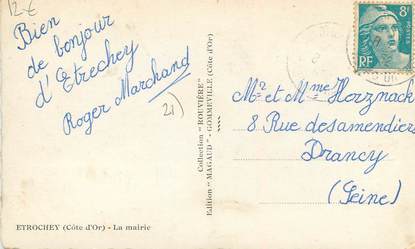 12€
Bien
de bonjour
d'Etrechey
Roger Marchand
21)
ETROCHEY (Côte d'Or) - La mairie
Collection "ROUVIÈRE"
Edition "MAGAUD" - GOMMEVILLE (Côte d'Or)
8F
RF
Mr et Mme Horznack
8 Rue des amendiers
Drancy
(Seine)